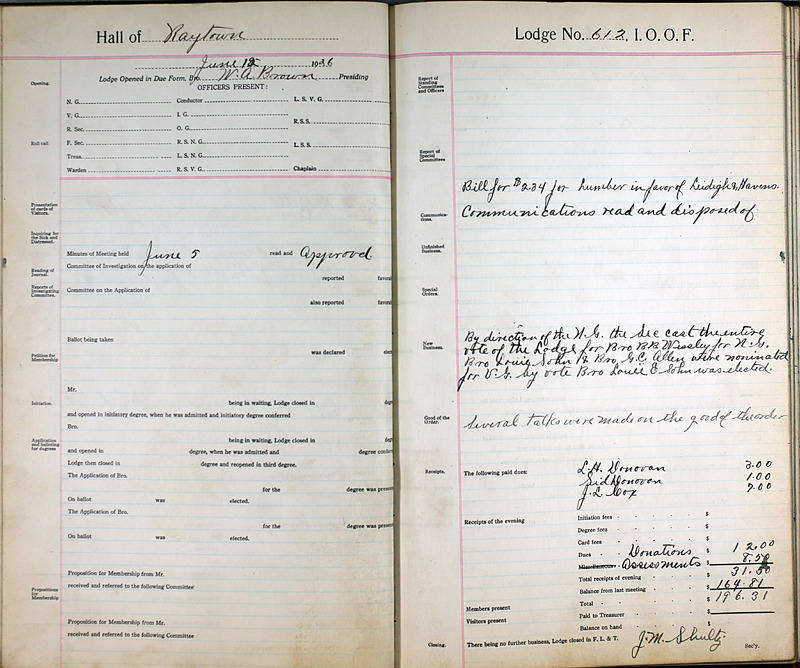 Hall of Raytown
June 12 1936
Lodge Opened in Due Form, By W. A. Brown Presiding
Opening.
OFFICERS PRESENT:
N. G. Conductor L. S. V. G.
V. G. I. G.
R. S. S.
R. Sec. O. G.
Roll call
F. Sec. R. S. N. G. L. S. S.
Treas. L. S. N. G.
Warden R. S. V. G. Chaplain
Presentation of cards of Visitors.
Inquiring for the Sick and Distressed.
Minutes of Meeting held June 5 read and Approved
Reading of Journal.
Committee of Investigation on the application of
reported favora
Reports of Investigating Committee.
Committee on the Application of
also reported favora
Ballot being taken
was declared elec
Petition for Membership
Mr.
Initiation.
being in waiting, Lodge closed in deg
and opened in initiatory degree, when he was admitted and initiatory degree conferred
Bro.
Application and balloting for degrees
being in waiting, Lodge closed in deg
and opened in degree, when he was admitted and degree confer
Lodge then closed in degree and reopened in third degree.
The Application of Bro.
for the degree was presen
On ballot was elected.
The Application of Bro.
for the degree was presen
On ballot was elected.
Proposition for Membership from Mr.
received and referred to the following Committee
Propositions for Membership
Proposition for Membership from Mr.
received and referred to the following Committee
Lodge No. 612, I. O. O. F.
Report of Standing Committees and Officers
Report of Special Committees
Bill for $2.34 for Lumber in favor of Leidigh & Havens
Communications.
Communications read and disposed of
Unfinished Business.
Special Orders.
New Business.
By direction of the N.G. the Sec cast the entire
vote of the Lodge for Bro B.B. for N.G.
Bro Louie John & Bro. G.C. Allen were nominated
for V.G. by vote Bro Louie E John was elected.
Good of the Order.
Several talks were made on the good of the order
Receipts. The following paid dues: L. H. Donovan 3.00
Sid Donovan 1.00
J. L. Cox
Receipts of the evening Initiation fees $
Degree fees $
Card fees $
Dues Donations $ 12.00
Miscellaneous assessments $ 8.50
Total receipts of evening $
Balance from last meeting $ 164.81
Total $ 196.31
Members present
Paid to Treasurer $
Visitors present
Balance on hand $
Closing. There being no further business, Lodge closed in F. L. & T. J. M. Shultz Sec'y.